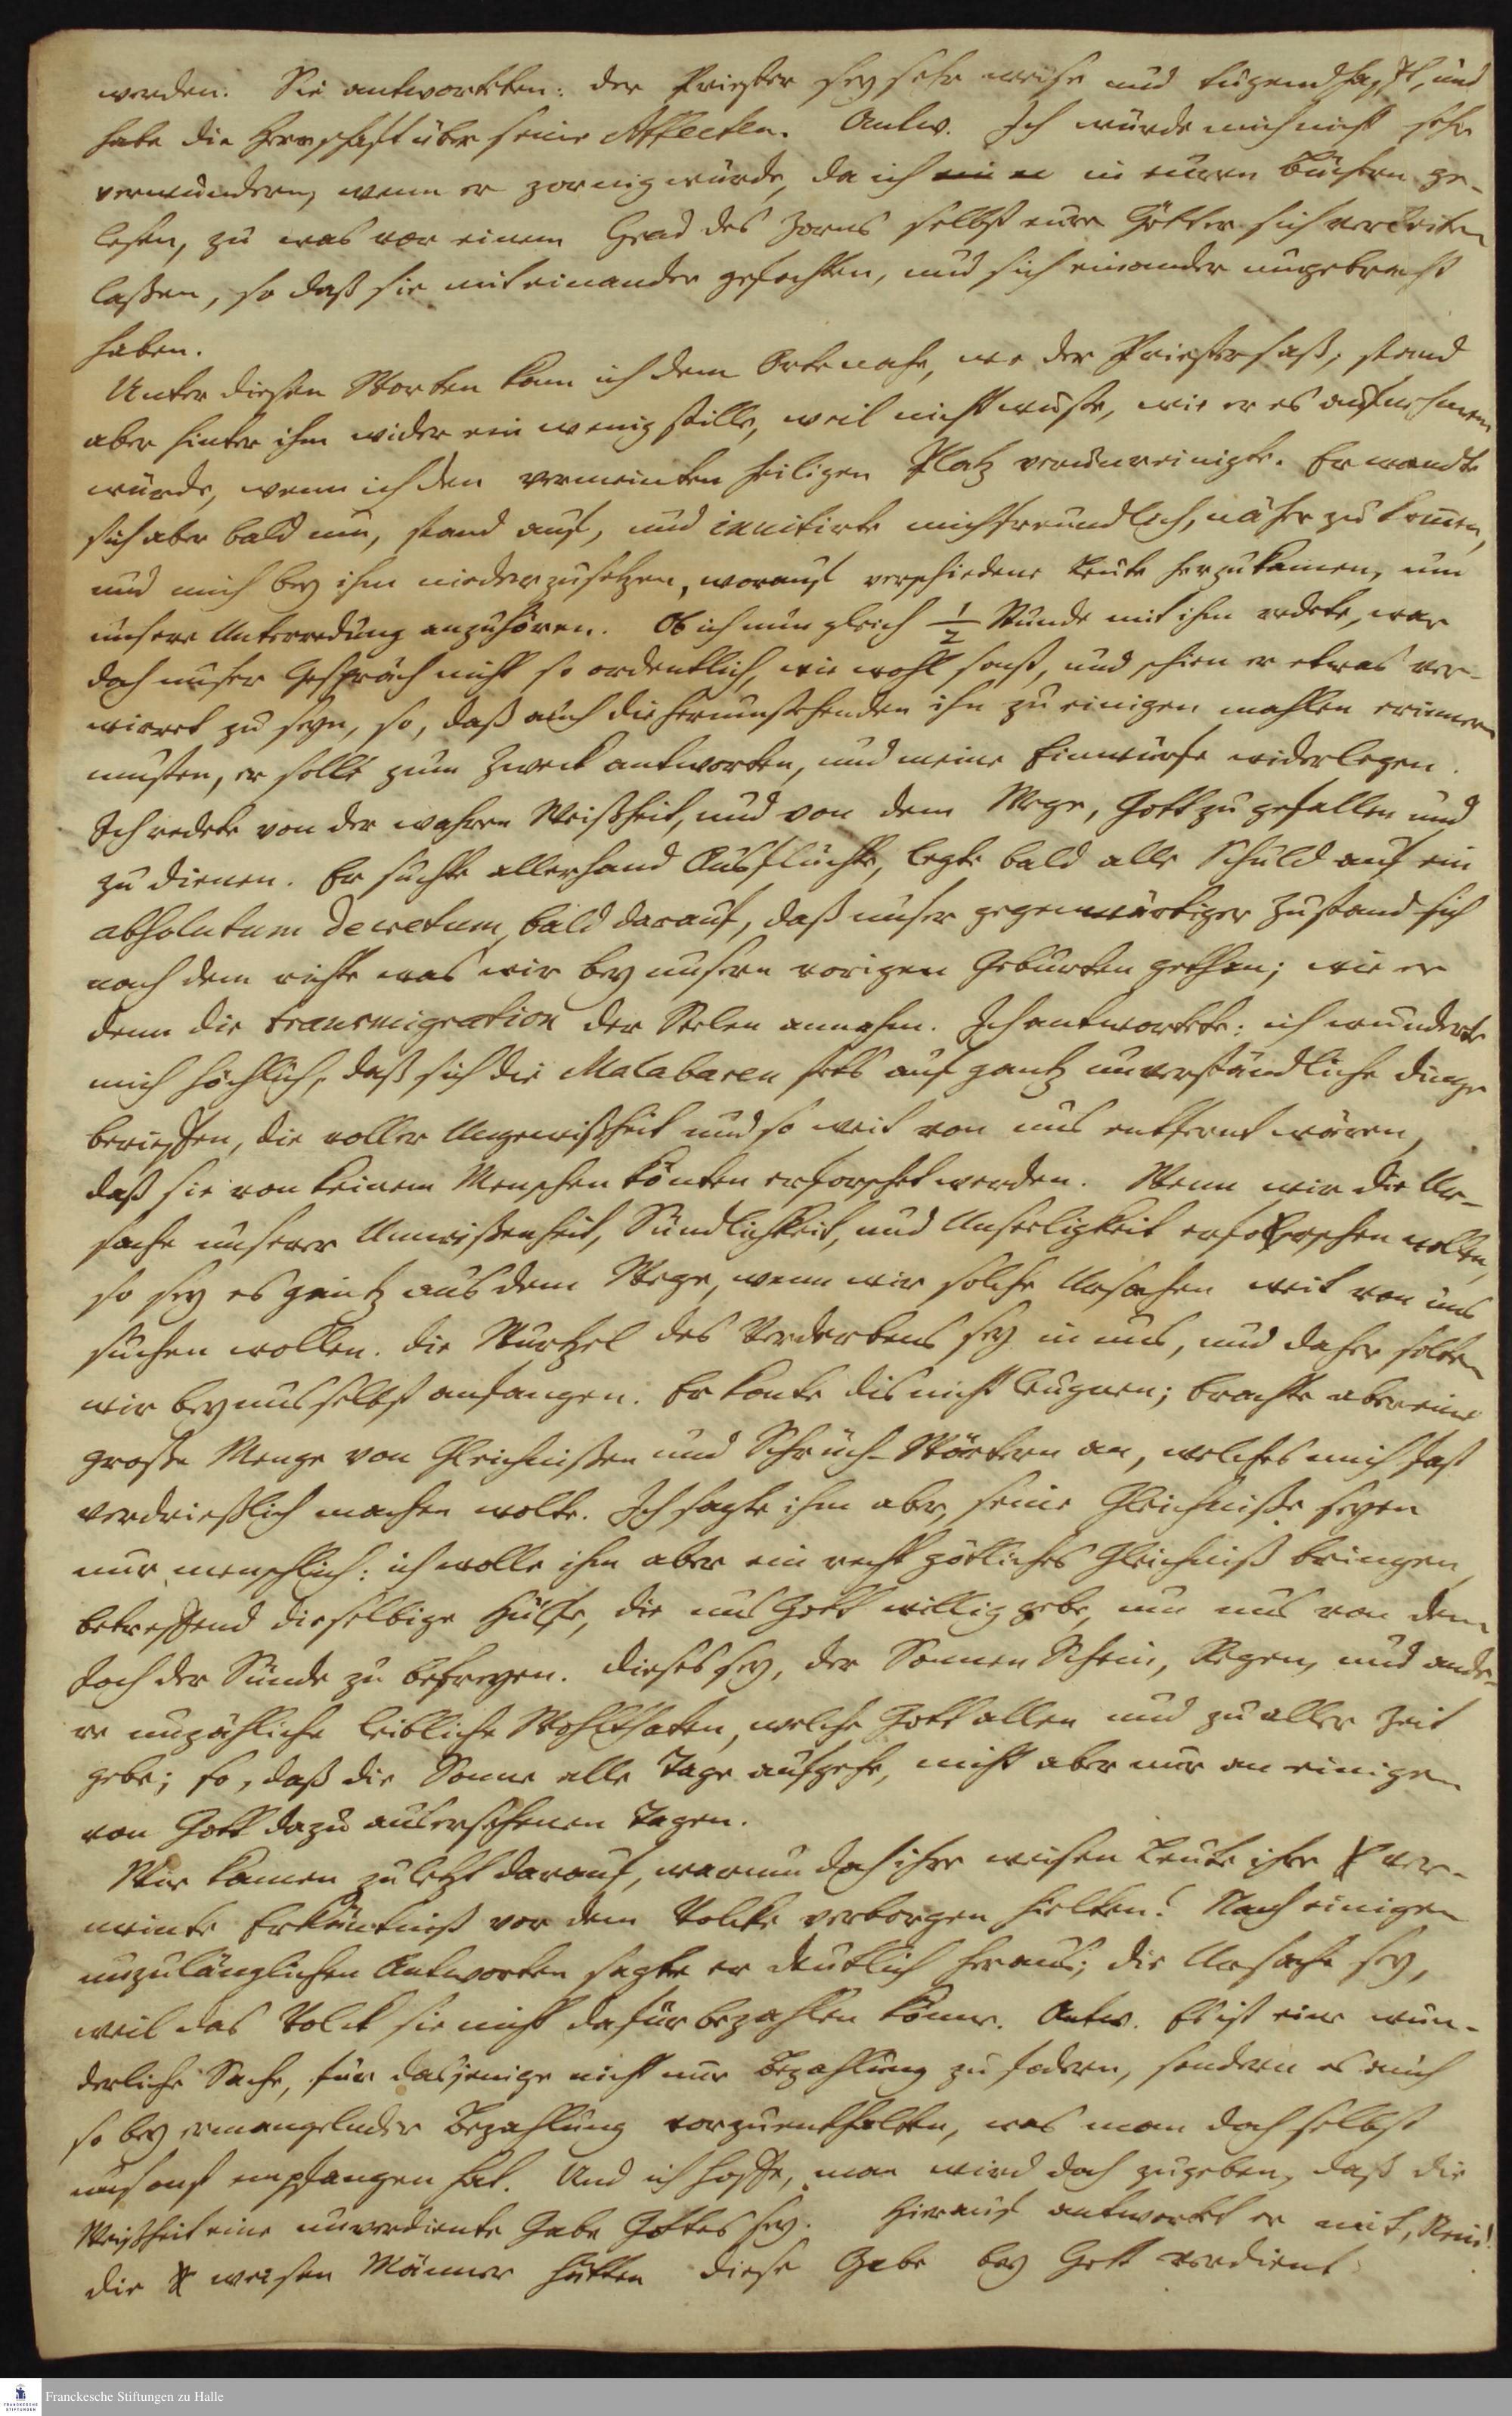 werden. Sie antworteten: der Priester sey sehr weise und tugendhafft, und
habe die Herrschafft über seine Affecten. Antw. Ich würde mich nicht sehr
verwundern, wenn er zornig würde, da ich in euren Büchern ge-
lesen, zu was vor einem Grad des Zorns selbst eure Götter sich verleiten
laßen, so daß sie mit einander gefochten, und sich einander umgebracht
haben.
Unter diesen Worten kam ich dem Orte nahe, wo der Priester saß, stand
aber hinter ihm wider ein wenig stille, weil nicht wuste, wie er es aufnehmen
würde, wenn ich den vermeinten heiligen Platz verunreinigte. Er wandte
sich aber bald um, stand auf, und invitirte mich freundlich, näher zu komen,
und mich bey ihm niederzusetzen, worauf verschiedene Leute herzukamen, um
unsere Unterredung anzuhören. Ob ich nun gleich 1/2 Stunde mit ihm redete, war
doch unser Gespräch nicht so ordentlich, wie wohl sonst, und schien er etwas ver-
wirret zu seyn, so, daß auch die herumstehenden ihn zu einigen mahlen erinnern
musten, er solle zum Zweck antworten, und meine Einwürfe widerlegen.
Ich redete von der wahren Weißheit, und von dem Wege, Gott zu gefallen und
zu dienen. Er suchte allerhand Ausflüchte, legte bald alle Schuld auf ein
absolutum decretum, bald darauf, daß unser gegenwärtiger Zustand sich
nach dem richte was wir bey unsern vorigen Geburten gethan; wie er
denn die transmigration der Seelen annahm. Ich antwortete: ich wunderte
mich höchlich, daß sich die Malabaren stets auf gantz unverständliche dinge
berieffen, die voller Ungewißheit und so weit von uns entfernt wären,
daß sie von keinem Menschen könten erforschet werden. Wenn wir die Ur-
sache unserer Unwißenheit, Sündlichkeit, und Unseeligkeit erforschen wollen,
so sey es gantz aus dem Wege, wenn wir solche Ursachen weit von uns
suchen wollen. Die Wurtzel des Verderbens sey in uns, und daher solten
wir bey uns selbst anfangen. Er konte dis nicht leugnen; brachte aber eine
große Menge von Gleichnißen und Sprüch-Wörtern an, welches mich fast
verdrießlich machen wolte. Ich sagte ihm aber, seine Gleichniße seyen
nur menschlich: ich wolle ihm aber ein recht götliches Gleichniß bringen,
betreffend dieselbige Hülfe, die uns Gott willig gebe, um uns von dem
Joch der Sünde zu befreyen. Dieses sey, der Sonnen Schein, Regen, und ande-
re unzähliche leibliche Wohlthaten, welche Gott allen und zu aller Zeit
gebe; so, daß die Sonne alle Tage aufgehe, nicht aber nur an einigen
von Gott dazu ausersehenen Tagen.
Wir kamen zuletzt darauf, warum doch ihre weisen Leute ihre ver-
meinte Erkäntniß vor dem Volcke verborgen hielten? Nach einigen
unzulänglichen Antworten sagte er deutlich heraus; die Ursache sey,
weil das Volck sie nicht dafür bezahlen könne. Antw. Es ist eine wun-
derliche Sache, für dasjenige nicht nur Bezahlung zu fodern, sondern es auch
so bey ermangelnder Bezahlung vorzuenthalten, was man doch selbst
umsonst empfangen hat. Und ich hoffe, man wird doch zugeben, daß die
Weißheit eine unverdiente Gabe Gottes sey. Hierauf antwortet er mit, Nein!
die weisen Männer hätten diese Gabe bey Gott verdient
Franckesche Stiftungen zu Halle